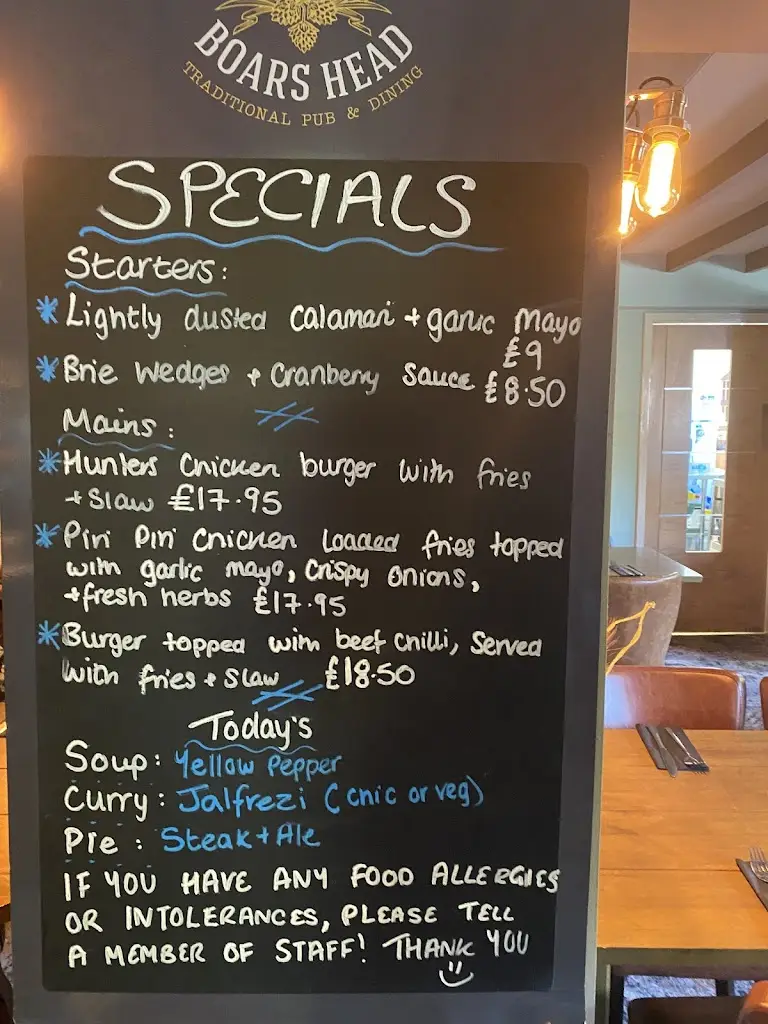 BOARS HEAD
TRADITIONAL PUB & DINING
SPECIALS
Starters:
* Lightly dusted calamari + garlic Mayo
£9
* Brie wedges + Cranberry Sauce £8.50
Mains:
* Hunters Chicken burger with fries
+ Slaw £17.95
* Piri Piri Chicken Loaded fries topped
with garlic mayo, crispy onions,
+ fresh herbs £17.95
* Burger topped with beef chilli, Served
with fries + Slaw £18.50
Today's
Soup: Yellow Pepper
Curry: Jalfrezi (chic or veg)
Pie: Steak + Ale
IF YOU HAVE ANY FOOD ALLERGIES
OR INTOLERANCES, PLEASE TELL
A MEMBER OF STAFF! THANK YOU